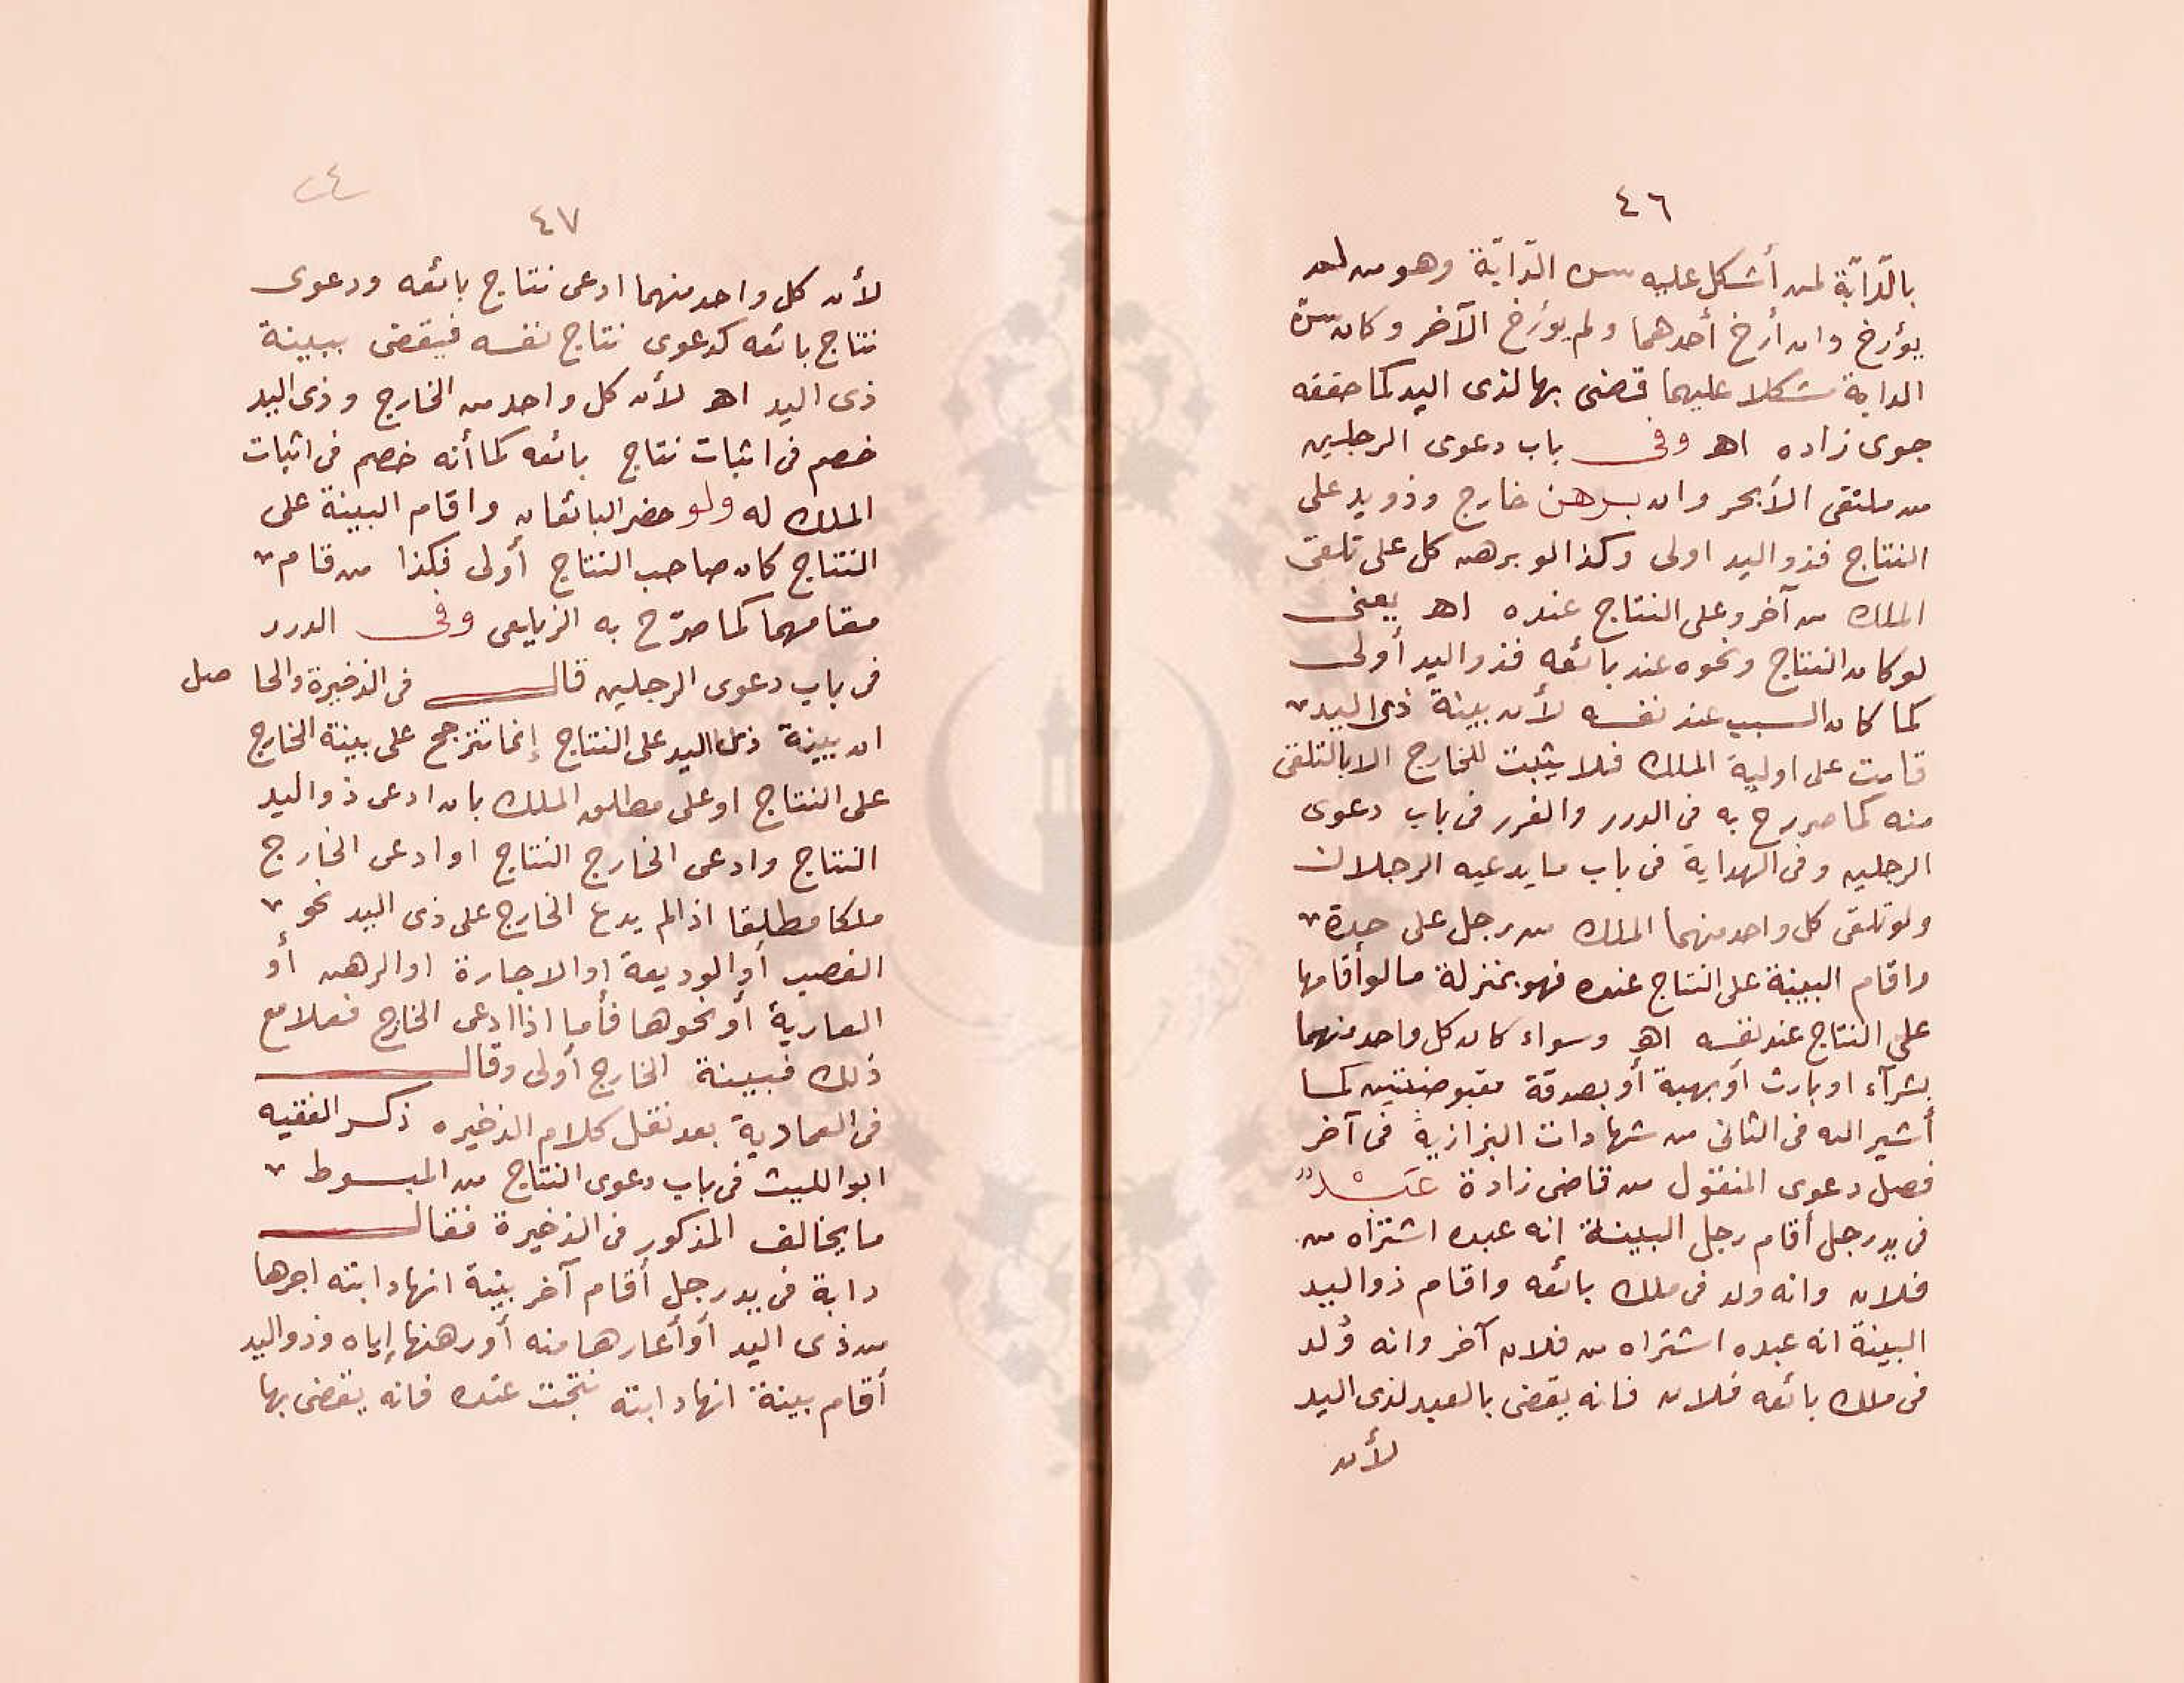 ٤٦
بالدّابّة لمن أشكل عليه سن الدّابّة وهو من لم
يؤرخ وان أرخ أحدهما ولم يؤرخ الآخر وكان سنّ
الدابة مشكلا عليهما قضى بها لذى اليد كما حققه
جوى زاده اهـ وفى باب دعوى الرجلين
من ملتقى الأبحر وان برهن خارج وذويد على
النتاج فذواليد اولى وكذا لو برهن كل على تلقى
الملك من آخر وعلى النتاج عنده اهـ يعنى
لو كان النتاج ونحوه عند بائعه فذواليد أولى
كما كان السبب عند نفسه لأن بينة ذى اليد
قامت على اولية الملك فلا يثبت للخارج الا بالتلقى
منه كما صرح به فى الدرر والغرر فى باب دعوى
الرجلين وفى الهداية فى باب ما يدعيه الرجلان
ولو تلقى كل واحد منهما الملك من رجل على حدة
واقام البينة على النتاج عنده فهو بمنزلة ما لو أقامها
على النتاج عند نفسه اهـ وسواء كان كل واحد منهما
بشرآء او بارث أو بهبة أو بصدقة مقبوضتين كما
أشير اليه فى الثانى من شهادات البزازية فى آخر
فصل دعوى المنقول من قاضى زادة عبد
فى يد رجل أقام رجل البينة انه عبده اشتراه من
فلان وانه ولد فى ملك بائعه واقام ذواليد
البينة انه عبده اشتراه من فلان آخر وانه وُلد
فى ملك بائعه فلان فانه يقضى بالعبد لذى اليد
لأن
٤٧
لأن كل واحد منهما ادعى نتاج بائعه ودعوى
نتاج بائعه كدعوى نتاج نفسه فيقضى ببينة
ذى اليد اهـ لأن كل واحد من الخارج وذى اليد
خصم فى اثبات نتاج بائعه كما أنه خصم فى اثبات
الملك له ولو حضر البائعان واقام البينة على
النتاج كان صاحب النتاج أولى فكذا من قام
مقامهما كما صرّح به الزيلعى وفى الدرر
فى باب دعوى الرجلين قال فى الذخيرة والحاصل
ان بينة ذى اليد على النتاج إنما تترجح على بينة الخارج
على النتاج او على مطلق الملك بان ادعى ذواليد
النتاج وادعى الخارج النتاج او ادعى الخارج
ملكا مطلقا اذا لم يدع الخارج على ذى اليد نحو
الغصب أو الوديعة او الاجارة او الرهن أو
العارية أو نحوها فأما اذا ادعى الخارج فعلا مع
ذلك فبينة الخارج أولى وقال
فى العمادية بعد نقل كلام الذخيره ذكر الفقيه
ابوالليث فى باب دعوى النتاج من المبسوط
ما يخالف المذكور فى الذخيرة فقال
دابة فى يد رجل أقام آخر بينة انها دابته اجرها
من ذى اليد أو أعارها منه أو رهنها إياه وذواليد
أقام بينة انها دابته نتجت عنده فانه يقضى بها